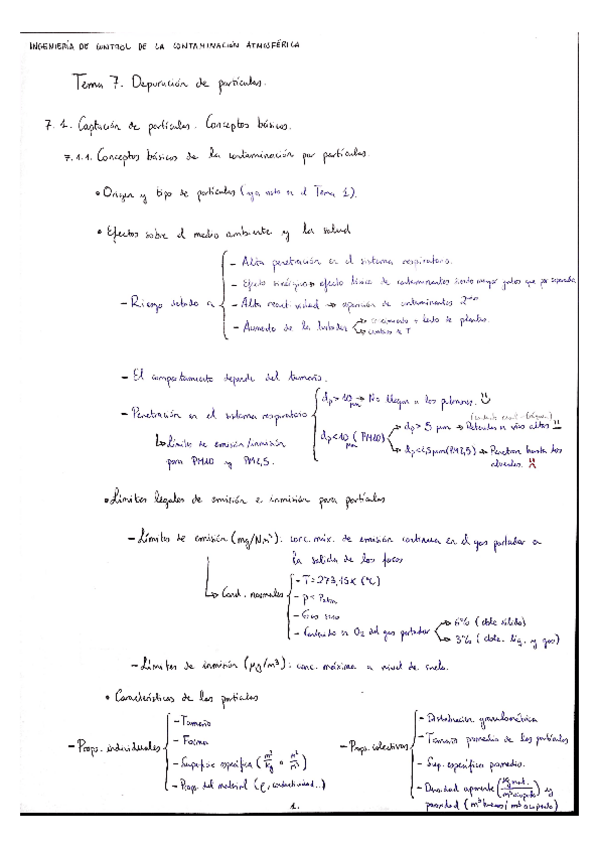 INGENIERÍA DE CONTROL DE LA CONTAMINACIÓN ATMOSFÉRICA
Tema 7. Depuración de partículas.
7.1. Captación de partículas. Conceptos básicos.
7.1.1. Conceptos básicos de la contaminación por partículas.
• Origen y tipo de partículas (ya visto en el Tema 1).
• Efectos sobre el medio ambiente y la salud
- Riesgo debido a
- Alta penetración en el sistema respiratorio.
- Efecto sinérgico → efecto tóxico de contaminantes siendo mayor juntos que por separado
- Alta reactividad → aparición de contaminantes 2rios
- Aumento de la turbidez
→ crecimiento + lento de plantas
→ cambios en T
- El comportamiento depende del tamaño.
- Penetración en el sistema respiratorio
dp > 10 μm → No llegan a los pulmones.
dp < 10 μm (PM10)
→ dp > 5 μm → Retenidas en vías altas
→ dp < 2,5 μm (PM2,5) → Penetran hasta los alveolos.
↳ Límites de emisión/inmisión
para PM10 y PM2,5.
• Límites legales de emisión e inmisión para partículas
- Límites de emisión (mg/Nm³): conc. máx. de emisión continua en el gas portador a
la salida de los focos
↳ Cond. normales
- T = 273,15K (ºC)
- p = Patm
- Gas seco
- Contenido en O2 del gas portador
→ 6% (cble sólido)
→ 3% (cble. líq. y gas)
- Límites de inmisión (μg/m³): conc. máxima a nivel de suelo.
• Características de las partículas
- Props. individuales
- Tamaño
- Forma
- Superficie específica (m²/kg o m²/m³)
- Props. del material (ρ, conductividad..)
- Props. colectivas
- Distribución granulométrica
- Tamaño promedio de las partículas
- Sup. específica promedio.
- Densidad aparente (kg mat./m³ ocupado) y
porosidad (m³ huecos/m³ ocupado)
1.